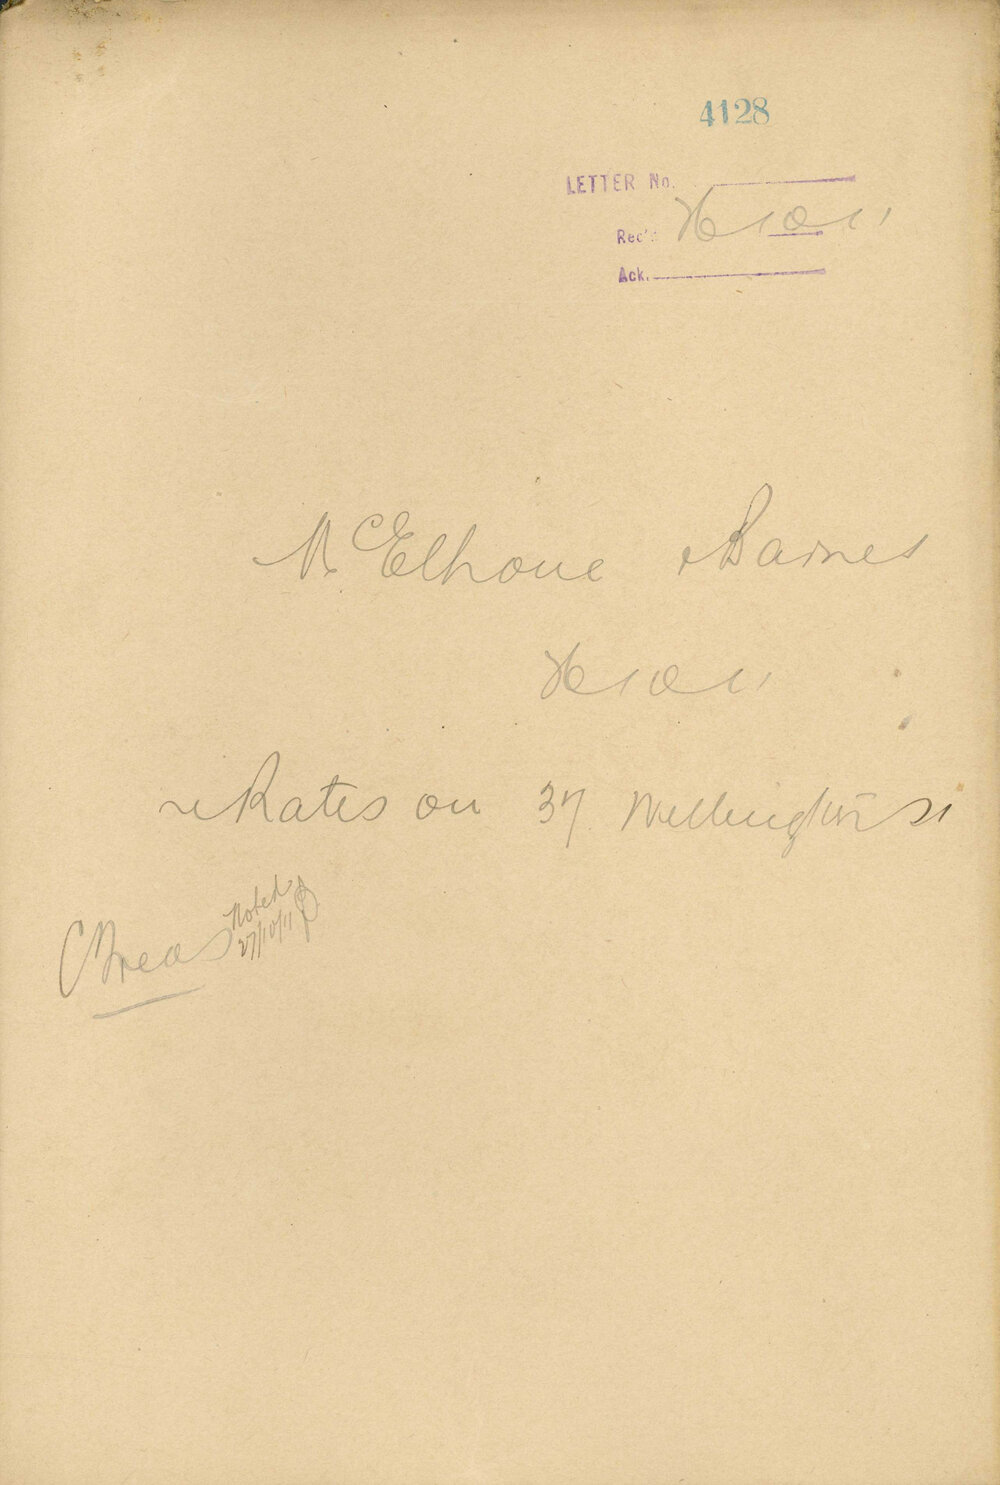 4128
LETTER No.
Rec'd 26 10 11
Ack.
McElhone & Barnes
26 10 11
re Rates on 37 Wellington St
C Treas
Noted
27/10/11